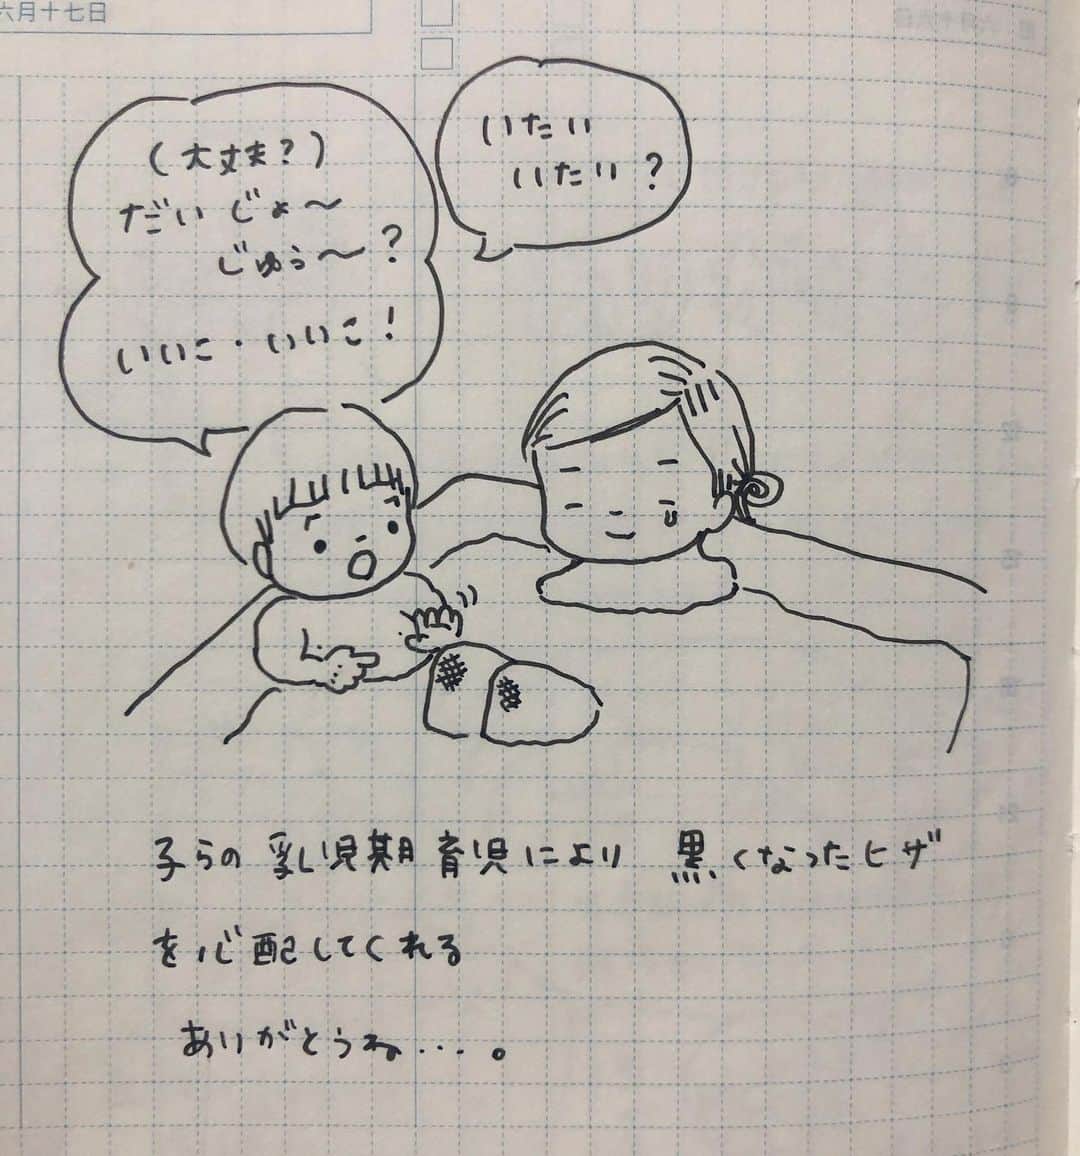 六月十七日
いたい
いたい？
（大丈夫？）
だいじょ〜
じゅう〜？
いいこ・いいこ！
子らの乳児期育児により 黒くなったヒザ
を心配してくれる
ありがとうね・・・・。